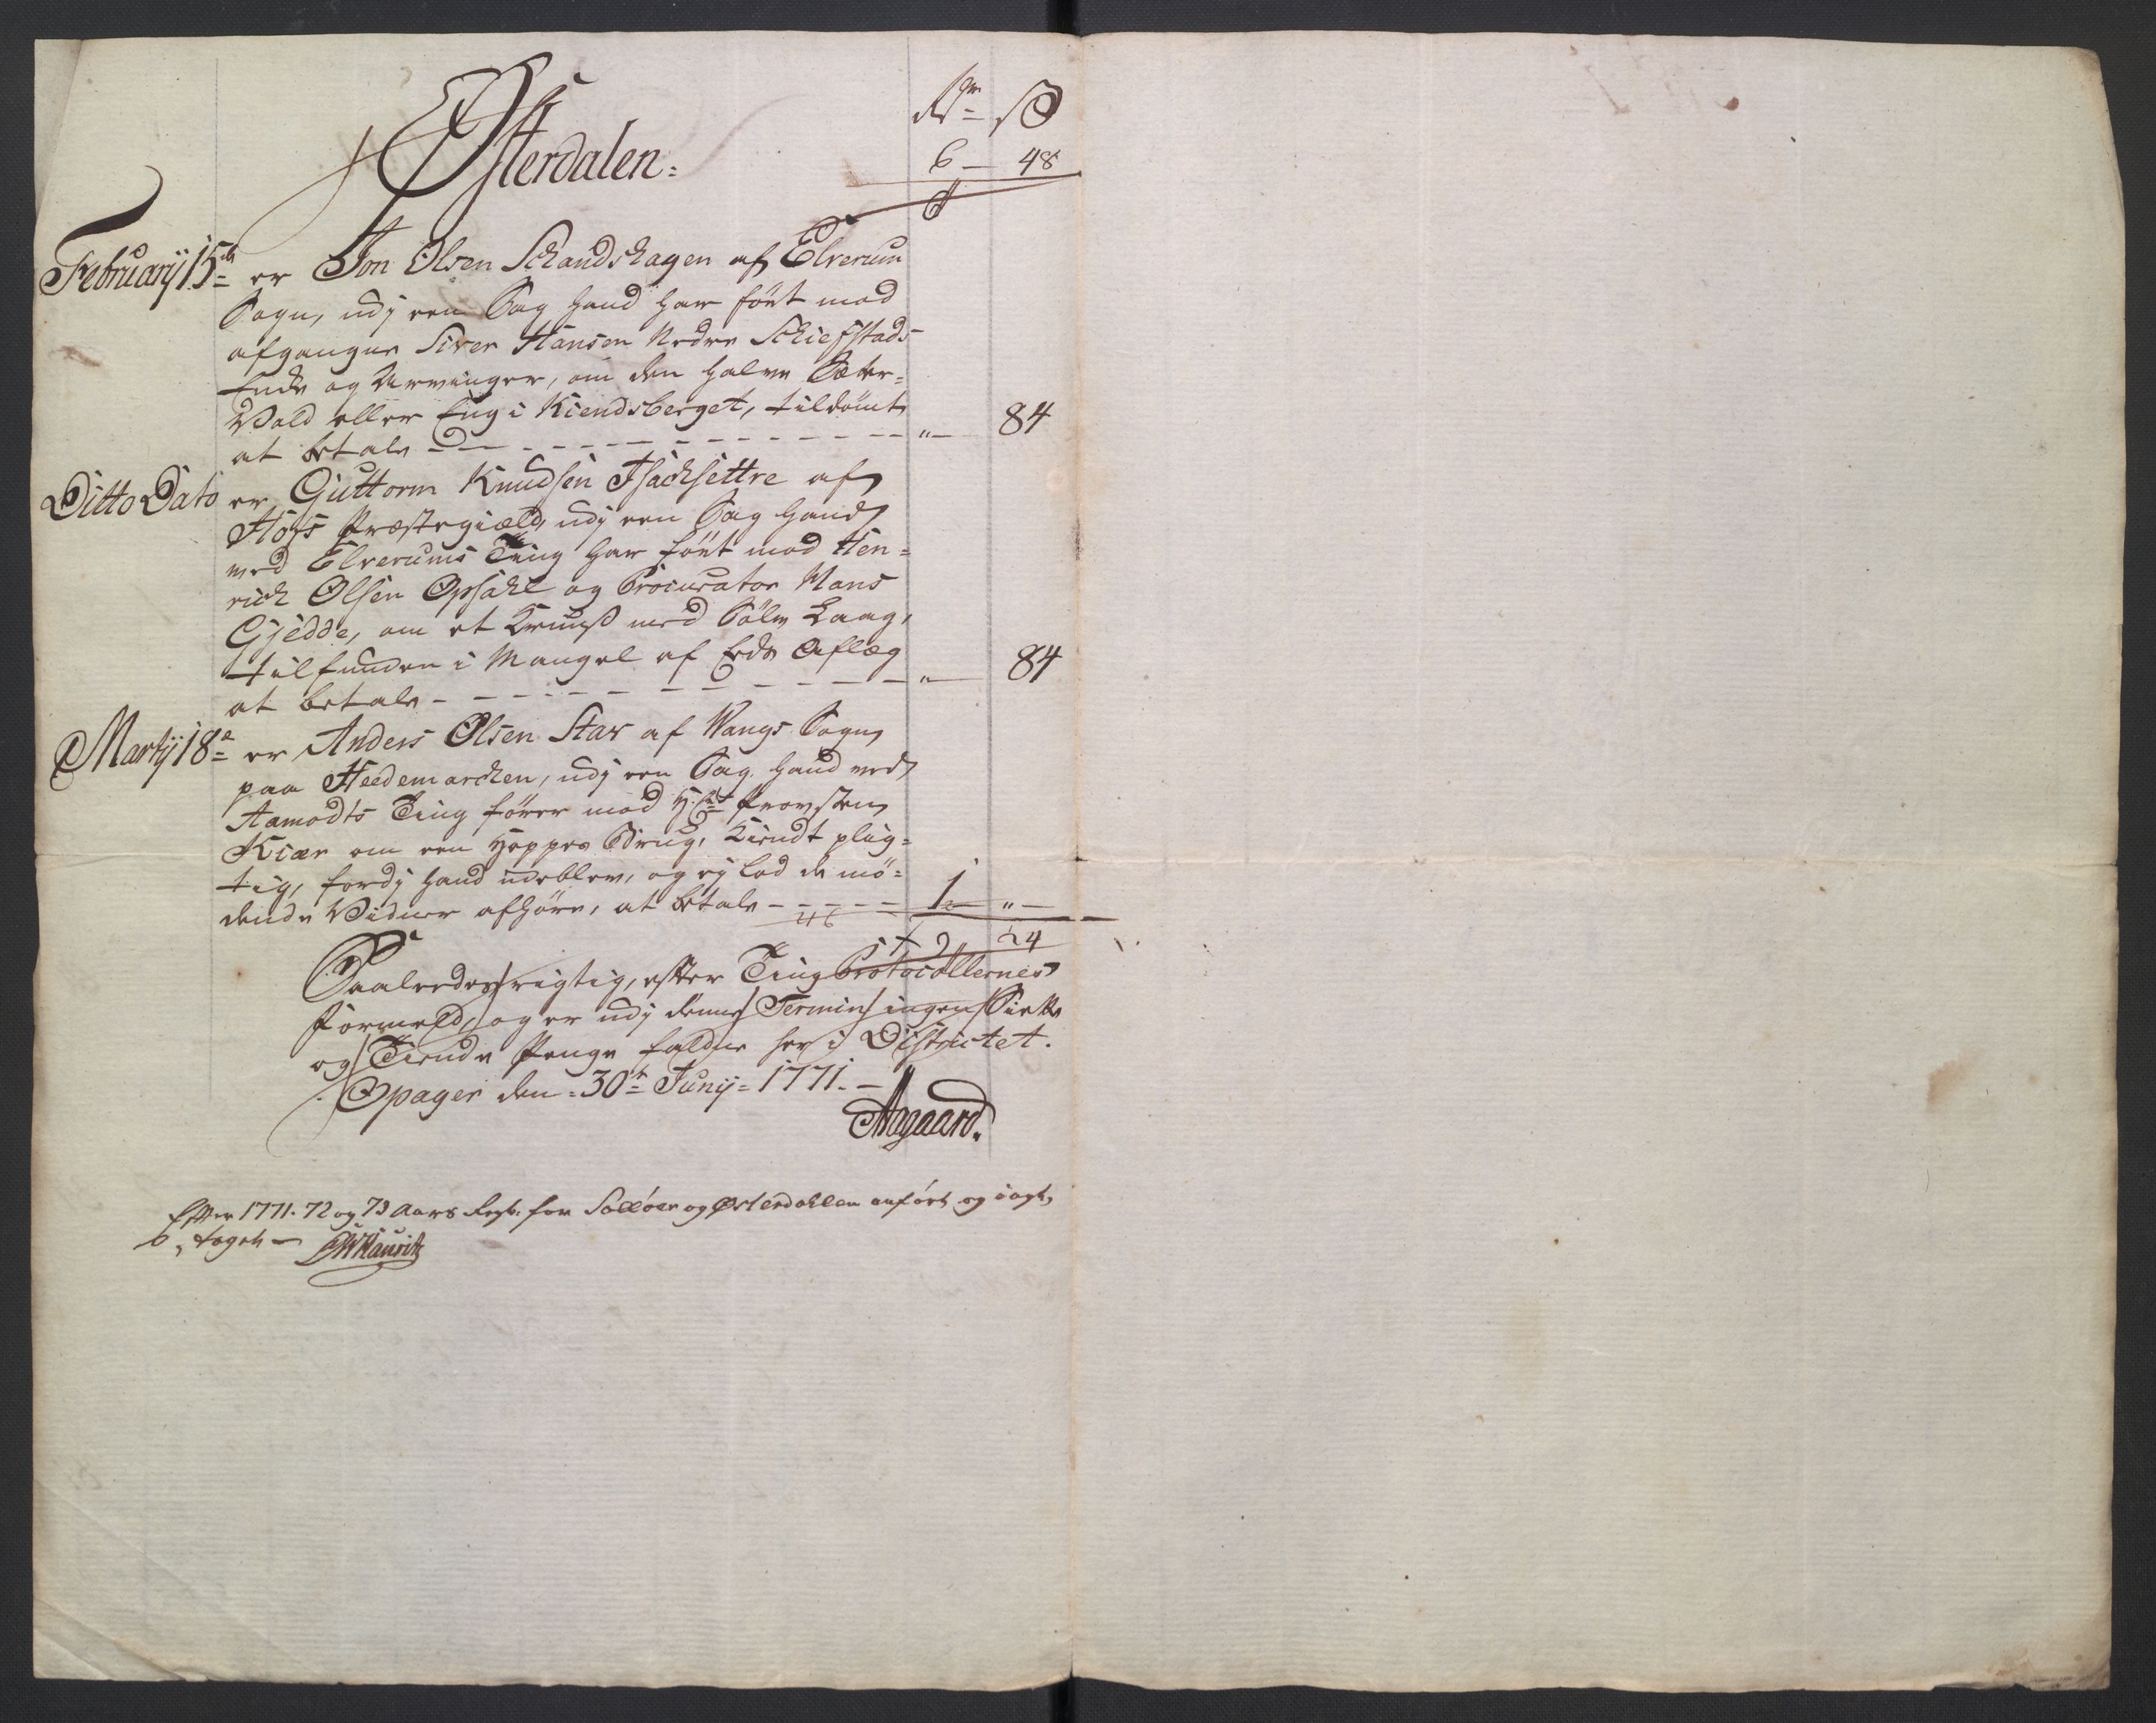 Østerdalen.
Rdr ß
6 — 48
Februarij 15de er Jon Olsen Schandshagen af Elverum
Sogn, udj een Sag hand har ført mod
afgangne Siver Hansen Nedre Schiefstads
Enke og Arvinger, om den halve Sæter-
Vold eller Eng i Kiendsberget, tildømt
at betale - - - - - - - " — 84
Ditto Dato er Guttorm Knudsen Isachsettre af
Hofs Præstegield, udj een Sag hand
ved Elverums Ting har ført mod Hen-
rich Olsen Opsahl og Procurator Mans
Gjedde, om et Kruus med Sølv Laag,
tilfunden i Mangel af Eeds Aflæg
at betale - - - - - - - " — 84
Martij 18de er Anders Olsen Star af Wangs Sogn
paa Heedemarchen, udj een Sag hand ved
Aamodts Ting fører mod Hr. Provsten
Kiær om een Hoppes Brug, kiendt plig-
tig, fordj hand udeblev, og ej lod de mø-
dende Vidner afhøre, at betale - - - - - 1 " —
46
9 24
Saaledes rigtig, efter Ting Protocollernes
Formeld, og er udj denne Termin ingen Siette
og Tiende Penge faldne her i Districtet.
Opager den 30te Junij 1771. —
Aagaard.
Efter 1771. 72 og 73 Aars Regb. for Soløer og Østerdahlen anført og
tagen — Hauritz